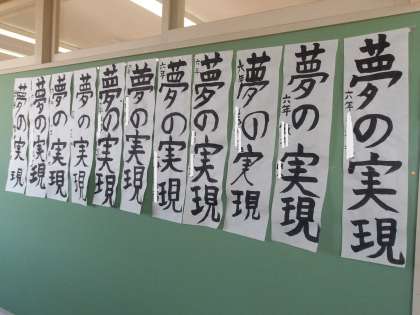 夢の実現
六年
夢の実現
六年
夢の実現
六年
夢の実現
六年
夢の実現
六年
夢の実現
夢の実現
夢の実現
夢の実現
夢の実現
夢の実現